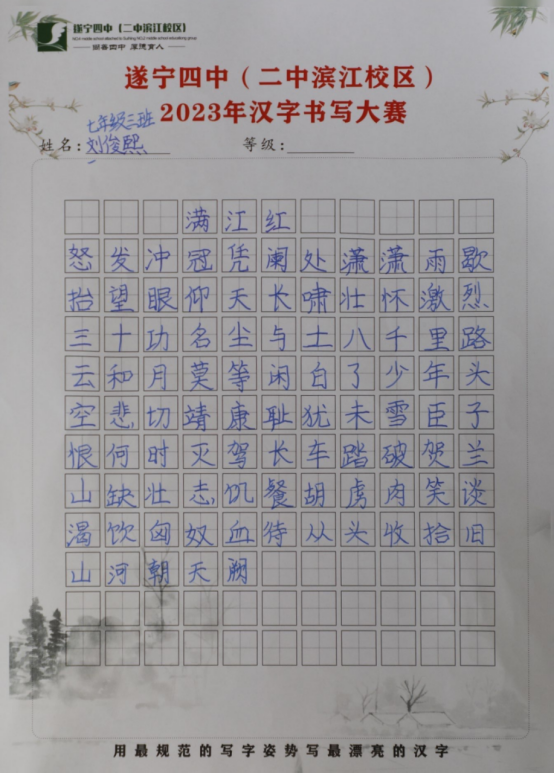 遂宁四中（二中滨江校区）
丽善四中 厚德育人
遂宁四中（二中滨江校区）
2023年汉字书写大赛
七年级三班
姓名：刘俊熙 等级：
满江红
怒发冲冠凭阑处潇潇雨歇
抬望眼仰天长啸壮怀激烈
三十功名尘与土八千里路
云和月莫等闲白了少年头
空悲切靖康耻犹未雪臣子
恨何时灭驾长车踏破贺兰
山缺壮志饥餐胡虏肉笑谈
渴饮匈奴血待从头收拾旧
山河朝天阙
用最规范的写字姿势写最漂亮的汉字